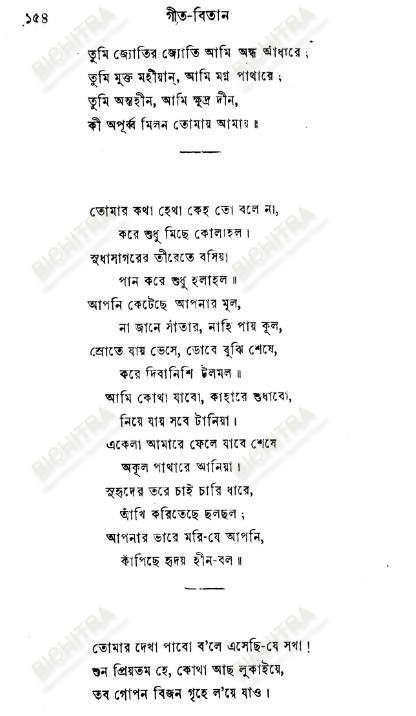 ১৫৪ গীত-বিতান
তুমি জ্যোতির জ্যোতি আমি অন্ধ আঁধারে ;
তুমি মুক্ত মহীয়ান্, আমি মগ্ন পাথারে ;
তুমি অন্তহীন, আমি ক্ষুদ্র দীন,
কী অপূর্ব্ব মিলন তোমায় আমায় ॥
তোমার কথা হেথা কেহ তো বলে না,
করে শুধু মিছে কোলাহল ।
সুধাসাগরের তীরেতে বসিয়া
পান করে শুধু হলাহল ॥
আপনি কেটেছে আপনার মূল,
না জানে সাঁতার, নাহি পায় কূল,
স্রোতে যায় ভেসে, ডোবে বুঝি শেষে,
করে দিবানিশি টলমল ॥
আমি কোথা যাবো, কাহারে শুধাবো,
নিয়ে যায় সবে টানিয়া ।
একেলা আমারে ফেলে যাবে শেষে
অকূল পাথারে আনিয়া ।
সুহৃদের তরে চাই চারি ধারে,
আঁখি করিতেছে ছলছল ;
আপনার ভারে মরি-যে আপনি,
কাঁপিছে হৃদয় হীন-বল ॥
তোমার দেখা পাবো ব'লে এসেছি-যে সখা !
শুন প্রিয়তম হে, কোথা আছ লুকাইয়ে,
তব গোপন বিজন গৃহে ল'য়ে যাও ।
BICHITRA
BICHITRA
BICHITRA
BICHITRA
BICHITRA
BICHITRA
BICHITRA
BICHITRA
BICHITRA
BICHITRA